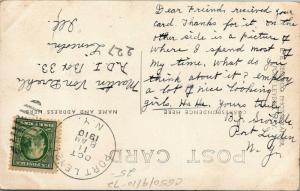 Dear Friend, received your
card. Thanks for it, on the
other side is a picture of
where I spend most of
my time, what do you
think about it? I employ
a lot of nice looking
girls, HaHa. Yours truly
Port Leyden
N.Y.
Martin
R D 1 Box 33.
Lincoln
Ill.
227
NAME AND ADDRESS HERE
CORRESPONDENCE HERE
POST CARD
PORT LEYDEN
N.Y.
OCT
1910